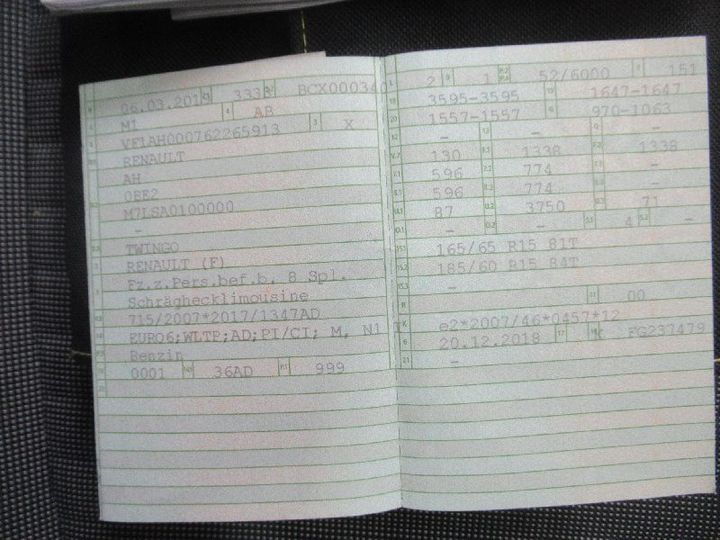 06.03.2019 3333 BCX000340
M1 AB
VF1AH000762265913 X
RENAULT
AH
0BE2
M7LSA0100000
-
TWINGO
RENAULT (F)
Fz.z.Pers.bef.b. 8 Spl.
Schräghecklimousine
715/2007*2017/1347AD
EURO6;WLTP;AD;PI/CI; M, N1 I
Benzin
0001 36AD 999
2 1 52/6000 151
3595-3595 1647-1647
1557-1557 970-1063
- - -
130 1338 1338
596 774 -
596 774 -
87 3750 71
- - 4 -
165/65 R15 81T
185/60 R15 84T
-
00
e2*2007/46*0457*12
20.12.2018 K FG237479
-